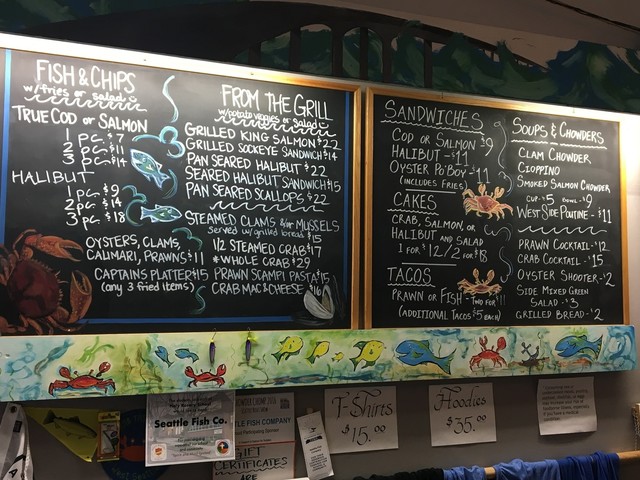 FISH & CHIPS
w/fries or salad
TRUE COD OR SALMON
1 pc. $7
2 pc. $11
3 pc. $14
HALIBUT
1 pc. $9
2 pc. $14
3 pc. $18
OYSTERS, CLAMS,
CALIMARI, PRAWNS $11
CAPTAINS PLATTER $15
(any 3 fried items)
FROM THE GRILL
w/potato veggies or salad
GRILLED KING SALMON $22
GRILLED SOCKEYE SANDWICH $14
PAN SEARED HALIBUT $22
SEARED HALIBUT SANDWICH $15
PAN SEARED SCALLOPS $22
STEAMED CLAMS &/or MUSSELS
served w/grilled bread $15
1/2 STEAMED CRAB $17
*WHOLE CRAB $29
PRAWN SCAMPI PASTA $15
CRAB MAC & CHEESE $16
SANDWICHES
COD OR SALMON $9
HALIBUT - $11
OYSTER PO'BOY $11
(INCLUDES FRIES)
CAKES
CRAB, SALMON, OR
HALIBUT AND SALAD
1 FOR $12/2 FOR $18
TACOS
PRAWN OR FISH - TWO FOR $11
(ADDITIONAL TACOS $5 EACH)
SOUPS & CHOWDERS
CLAM CHOWDER
CIOPPINO
SMOKED SALMON CHOWDER
CUP - $5 BOWL - $9
WEST SIDE POUTINE - $11
PRAWN COCKTAIL - $12
CRAB COCKTAIL - $15
OYSTER SHOOTER - $2
SIDE MIXED GREEN
SALAD - $3
GRILLED BREAD - $2
Seattle Fish Co.
FISH COMPANY
GIFT
CERTIFICATES
ARE
T-Shirts
$15.00
Hoodies
$35.00